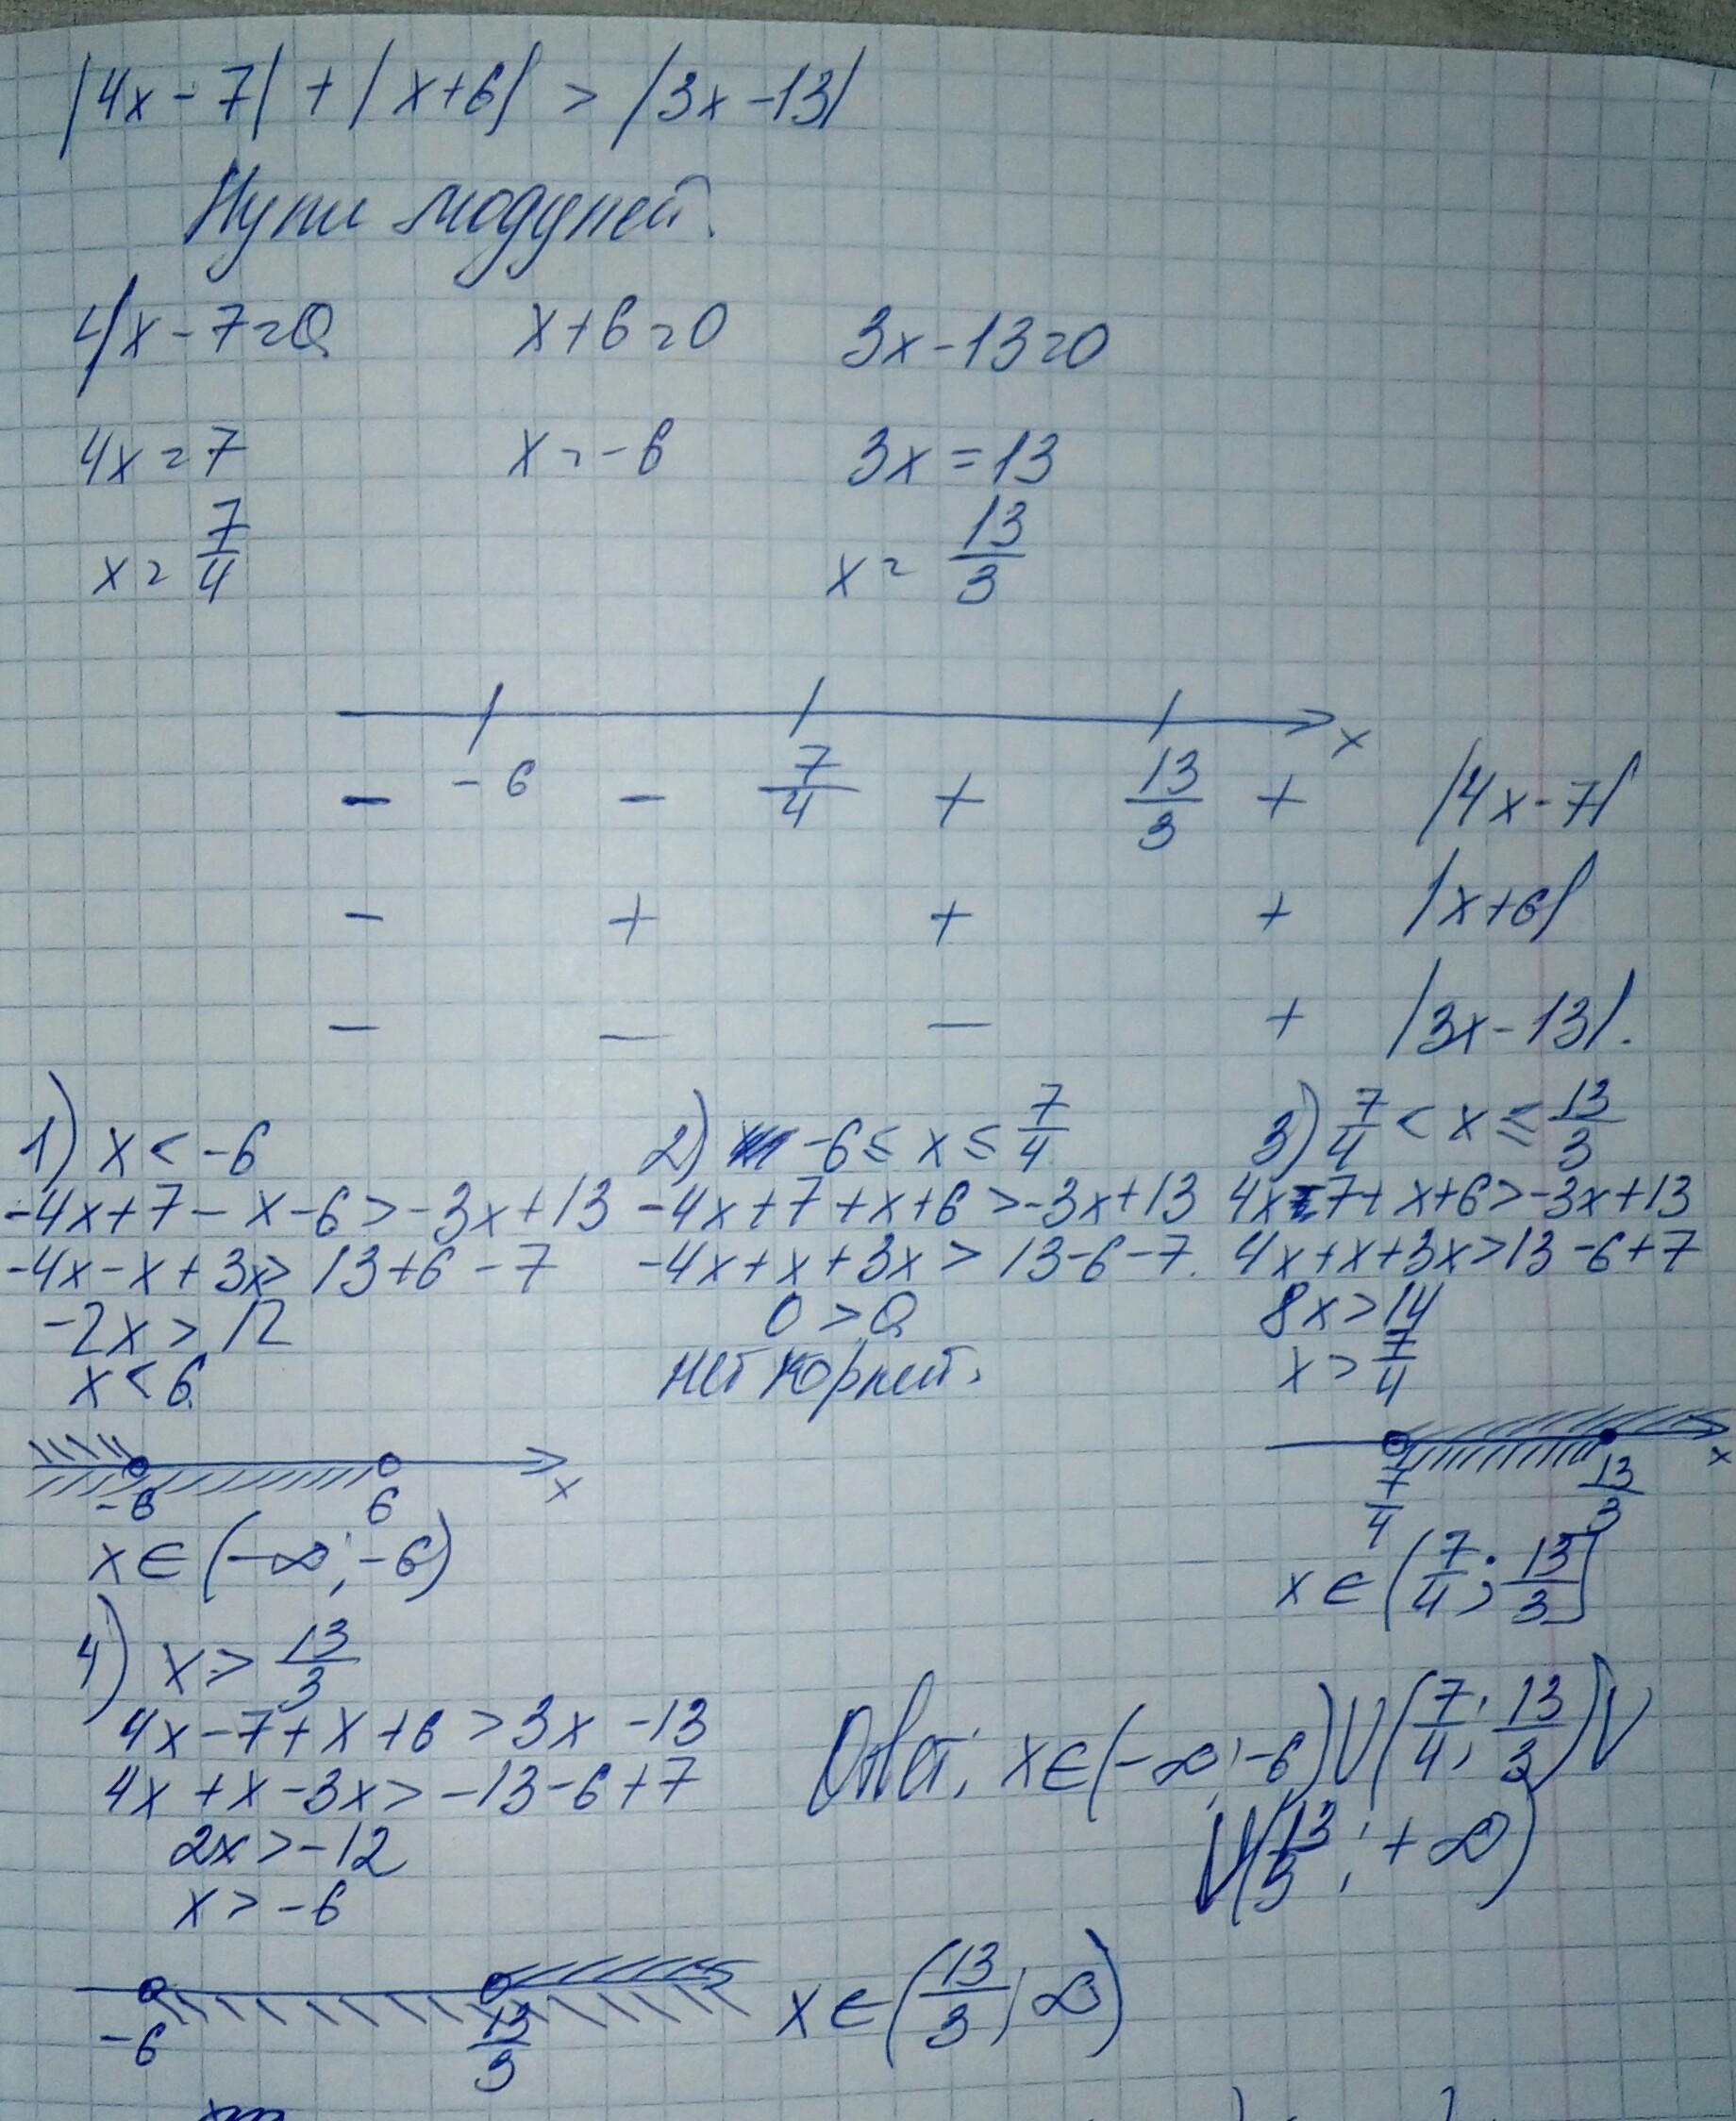 |4x - 7| + |x+6| > |3x - 13|
Нули модулей.
4x - 7 = 0 x+6 = 0 3x - 13 = 0
4x = 7 x = -6 3x = 13
x = 7/4 x = 13/3
x
-6 7/4 13/3
- - + + |4x - 7|
- + + + |x+6|
- - - + |3x - 13|.
1) x < -6
-4x+7 - x - 6 > -3x+13
-4x - x + 3x > 13+6 - 7
-2x > 12
x < 6
-6 6 x
x ∈ (-∞; -6)
2) -6 ≤ x ≤ 7/4
-4x+7+x+6 > -3x+13
-4x+x+3x > 13-6-7.
0 > 0
нет корней.
3) 7/4 < x ≤ 13/3
4x-7+x+6 > -3x+13
4x+x+3x > 13-6+7
8x > 14
x > 7/4
7/4 13/3 x
x ∈ (7/4; 13/3]
4) x > 13/3
4x - 7 + x + 6 > 3x - 13
4x + x - 3x > -13 - 6 + 7
2x > -12
x > -6
-6 13/3
x ∈ (13/3; ∞)
Ответ: x ∈ (-∞; -6) U (7/4; 13/3) U
U (13/3; +∞)